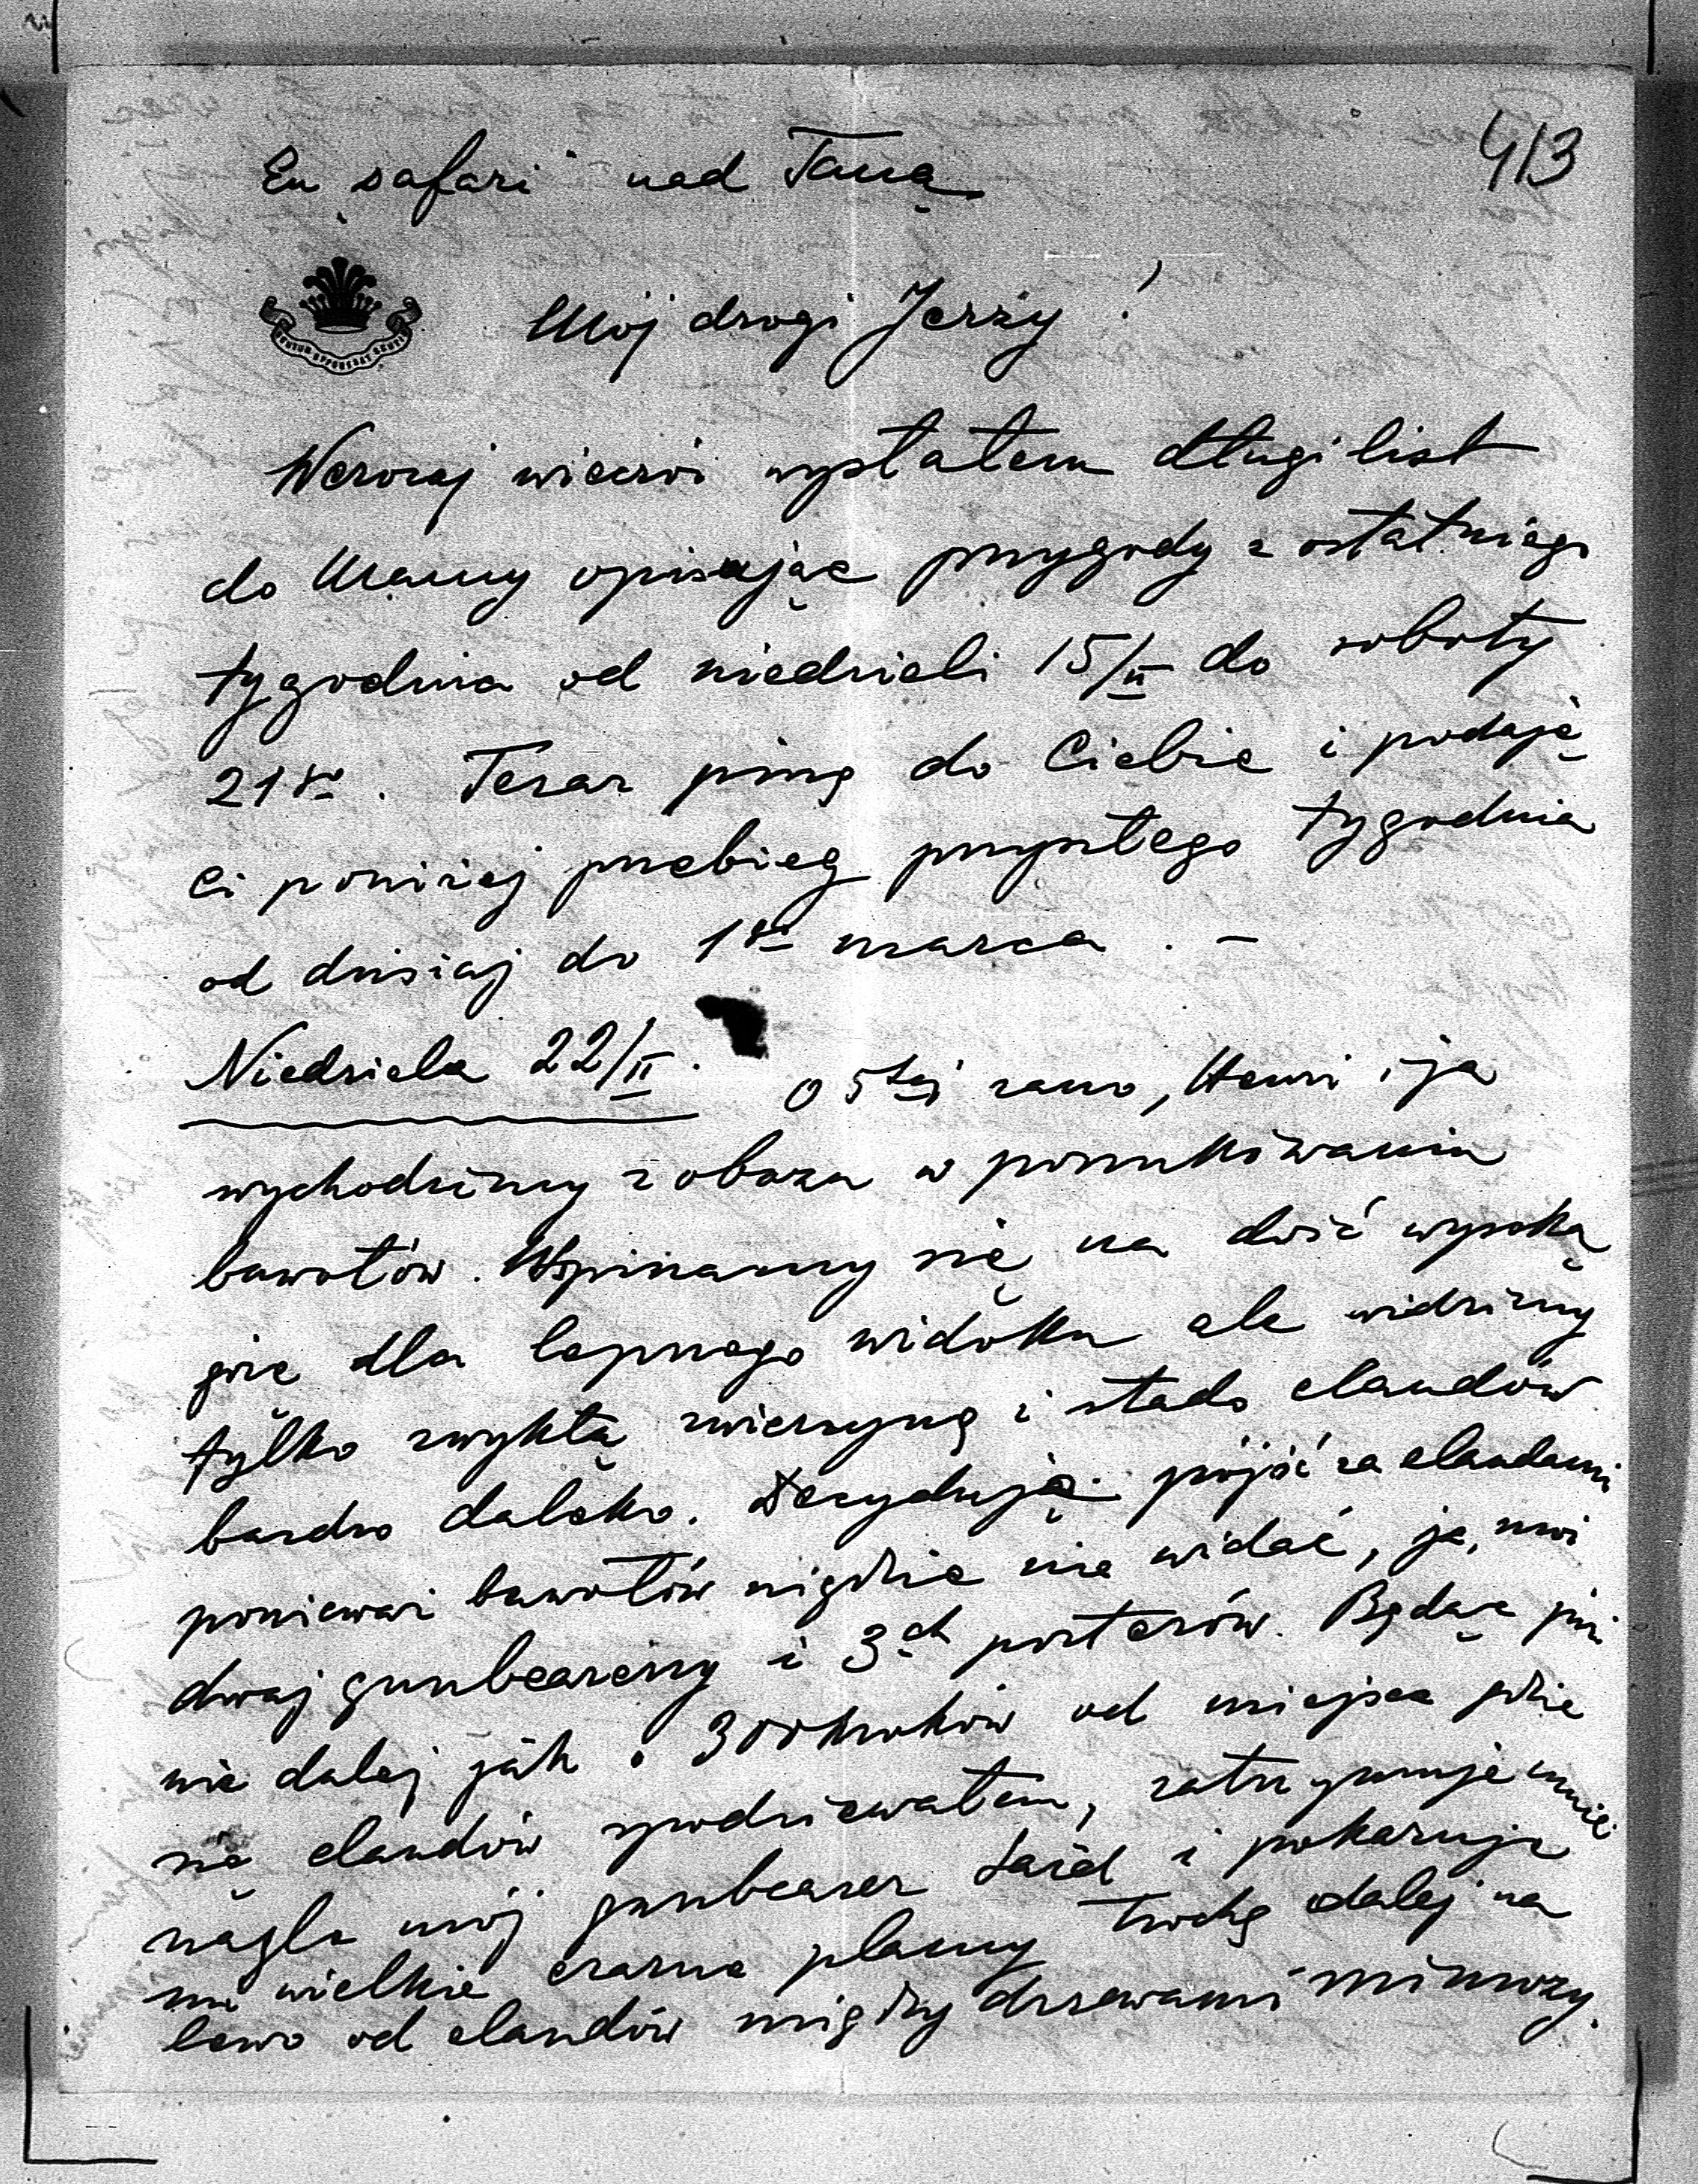 413
En „safari" nad Taną
Mój drogi Jerzy!
Wczoraj wieczór wysłałem długi list
do Mamy opisując przygody z ostatniego
tygodnia od niedzieli 15/II do soboty
21go. Teraz piszę do Ciebie i podaję
Ci poniżej przebieg przyszłego tygodnia
od dzisiaj do 1go marca. –
Niedziela 22/II. o 5tej rano, Henri i ja
wychodzimy z obozu w poszukiwaniu
bawołów. Wspinamy się na dość wysoką
górę dla lepszego widoku ale widzimy
tylko zwykłą zwierzynę i stado elandów
bardzo daleko. Decyduję pójść za elandami
ponieważ bawołów nigdzie nie widać, ja, moi
dwaj gunbearerzy i 3ch porterów. Będąc już
nie dalej jak o 300 kroków od miejsca gdzie
się elandów spodziewałem, zatrzymuje mnie
nagle mój gunbearer Said i pokazuje
mi wielkie czarne plamy trochę dalej na
lewo od elandów między drzewami mimozy.